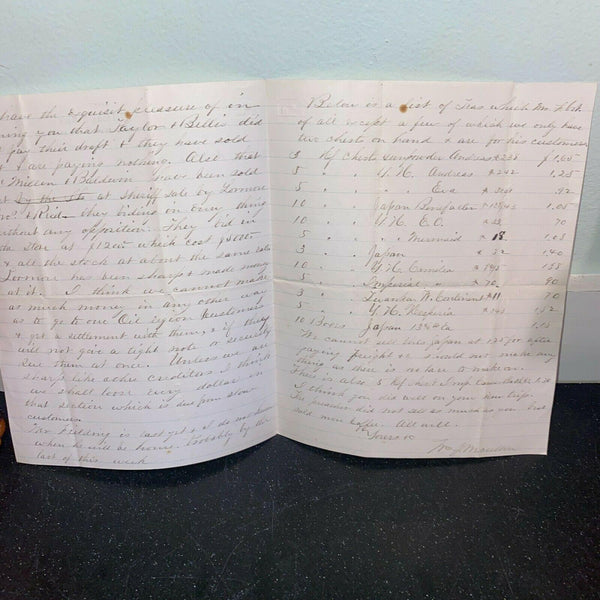 have the exquisit pleasure of in
ing you that Taylor & Bettis did
pay their draft & they have sold
& are paying nothing. Also that
& Baldwin have been sold
at Sheriff sale by
they bidding in every thing
without any opposition. They bid in
the Star at $1200 which cost $8000
& all the stock at about the same rates
has been sharp & made money
at it. I think we cannot make
as much money in any other way
as to go to our Oil Region Customers
& get a settlement with them, & if they
will not give a light note or security
Sue them at once. Unless we are
sharp like other creditors I think
shall loose every dollar in
that section which is due from slow
customers.
Mr Fielding is east yet & I do not know
when he will be home. Probably by the
last of this week
Below is a list of Teas which Mr
of all except a few of which we only have
two chests on hand & are for his customers
3 Hf Chests Gunpowder Andreas # 232 $1.05
5 " " Y.H. Andreas # 242 1.25
5 " " " Eva .92
10 " " Japan 1.05
10 " " Y.H. E.O. 70
5 " " " Mermaid # 18 1.05
3 " " Japan # 22 1.40
10 " " Y.H. Emilia 1.55
5 " " Imperial # 70 80
3 " " # 11 70
5 " " Y.H. Hesperia .92
10 Boxes Japan 1.15
We cannot sell this Japan at 125 for after
paying freight &c should not make any
thing as there is no tare to make on.
There is also 3 Hf Chest Imp
I think you did well on your last trip.
The peaches did not sell so much as you but
sold more Coffee. All well.
Yours &c